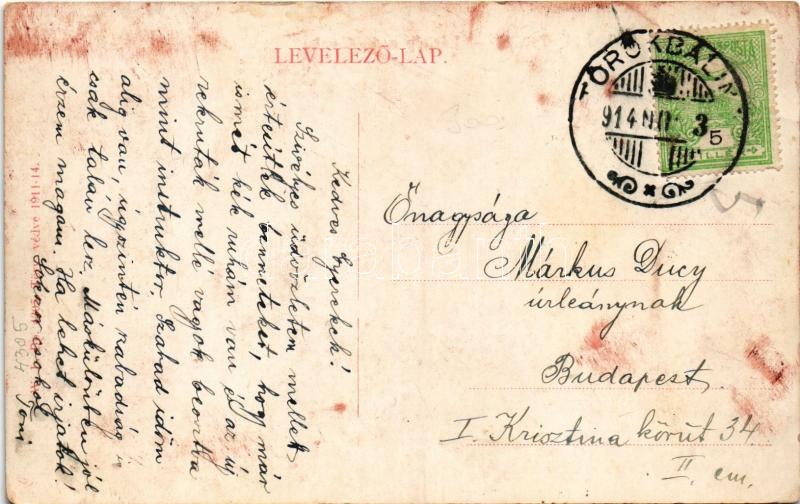 LEVELEZŐ-LAP.
TÖRÖKBÁLINT
914 NOV 3
5
FILLÉR
Kedves Gyerekek!
Szivélyes üdvözletem mellett
értesitlek benneteket, hogy már
ismét kék ruhám van és az uj
rekruták mellé vagyok beosztva
mint instruktor. Szabad időm
alig van, úgyszintén szabadság is
csak talán lesz. Máskülönben jól
érzem magam. Ha lehet irjatok!
Sokszor csókol
Toni
Őnagysága
Márkus Ducy
úrleánynak
Budapest
I. Krisztina körút 34
II. em.
1911-14.
9034